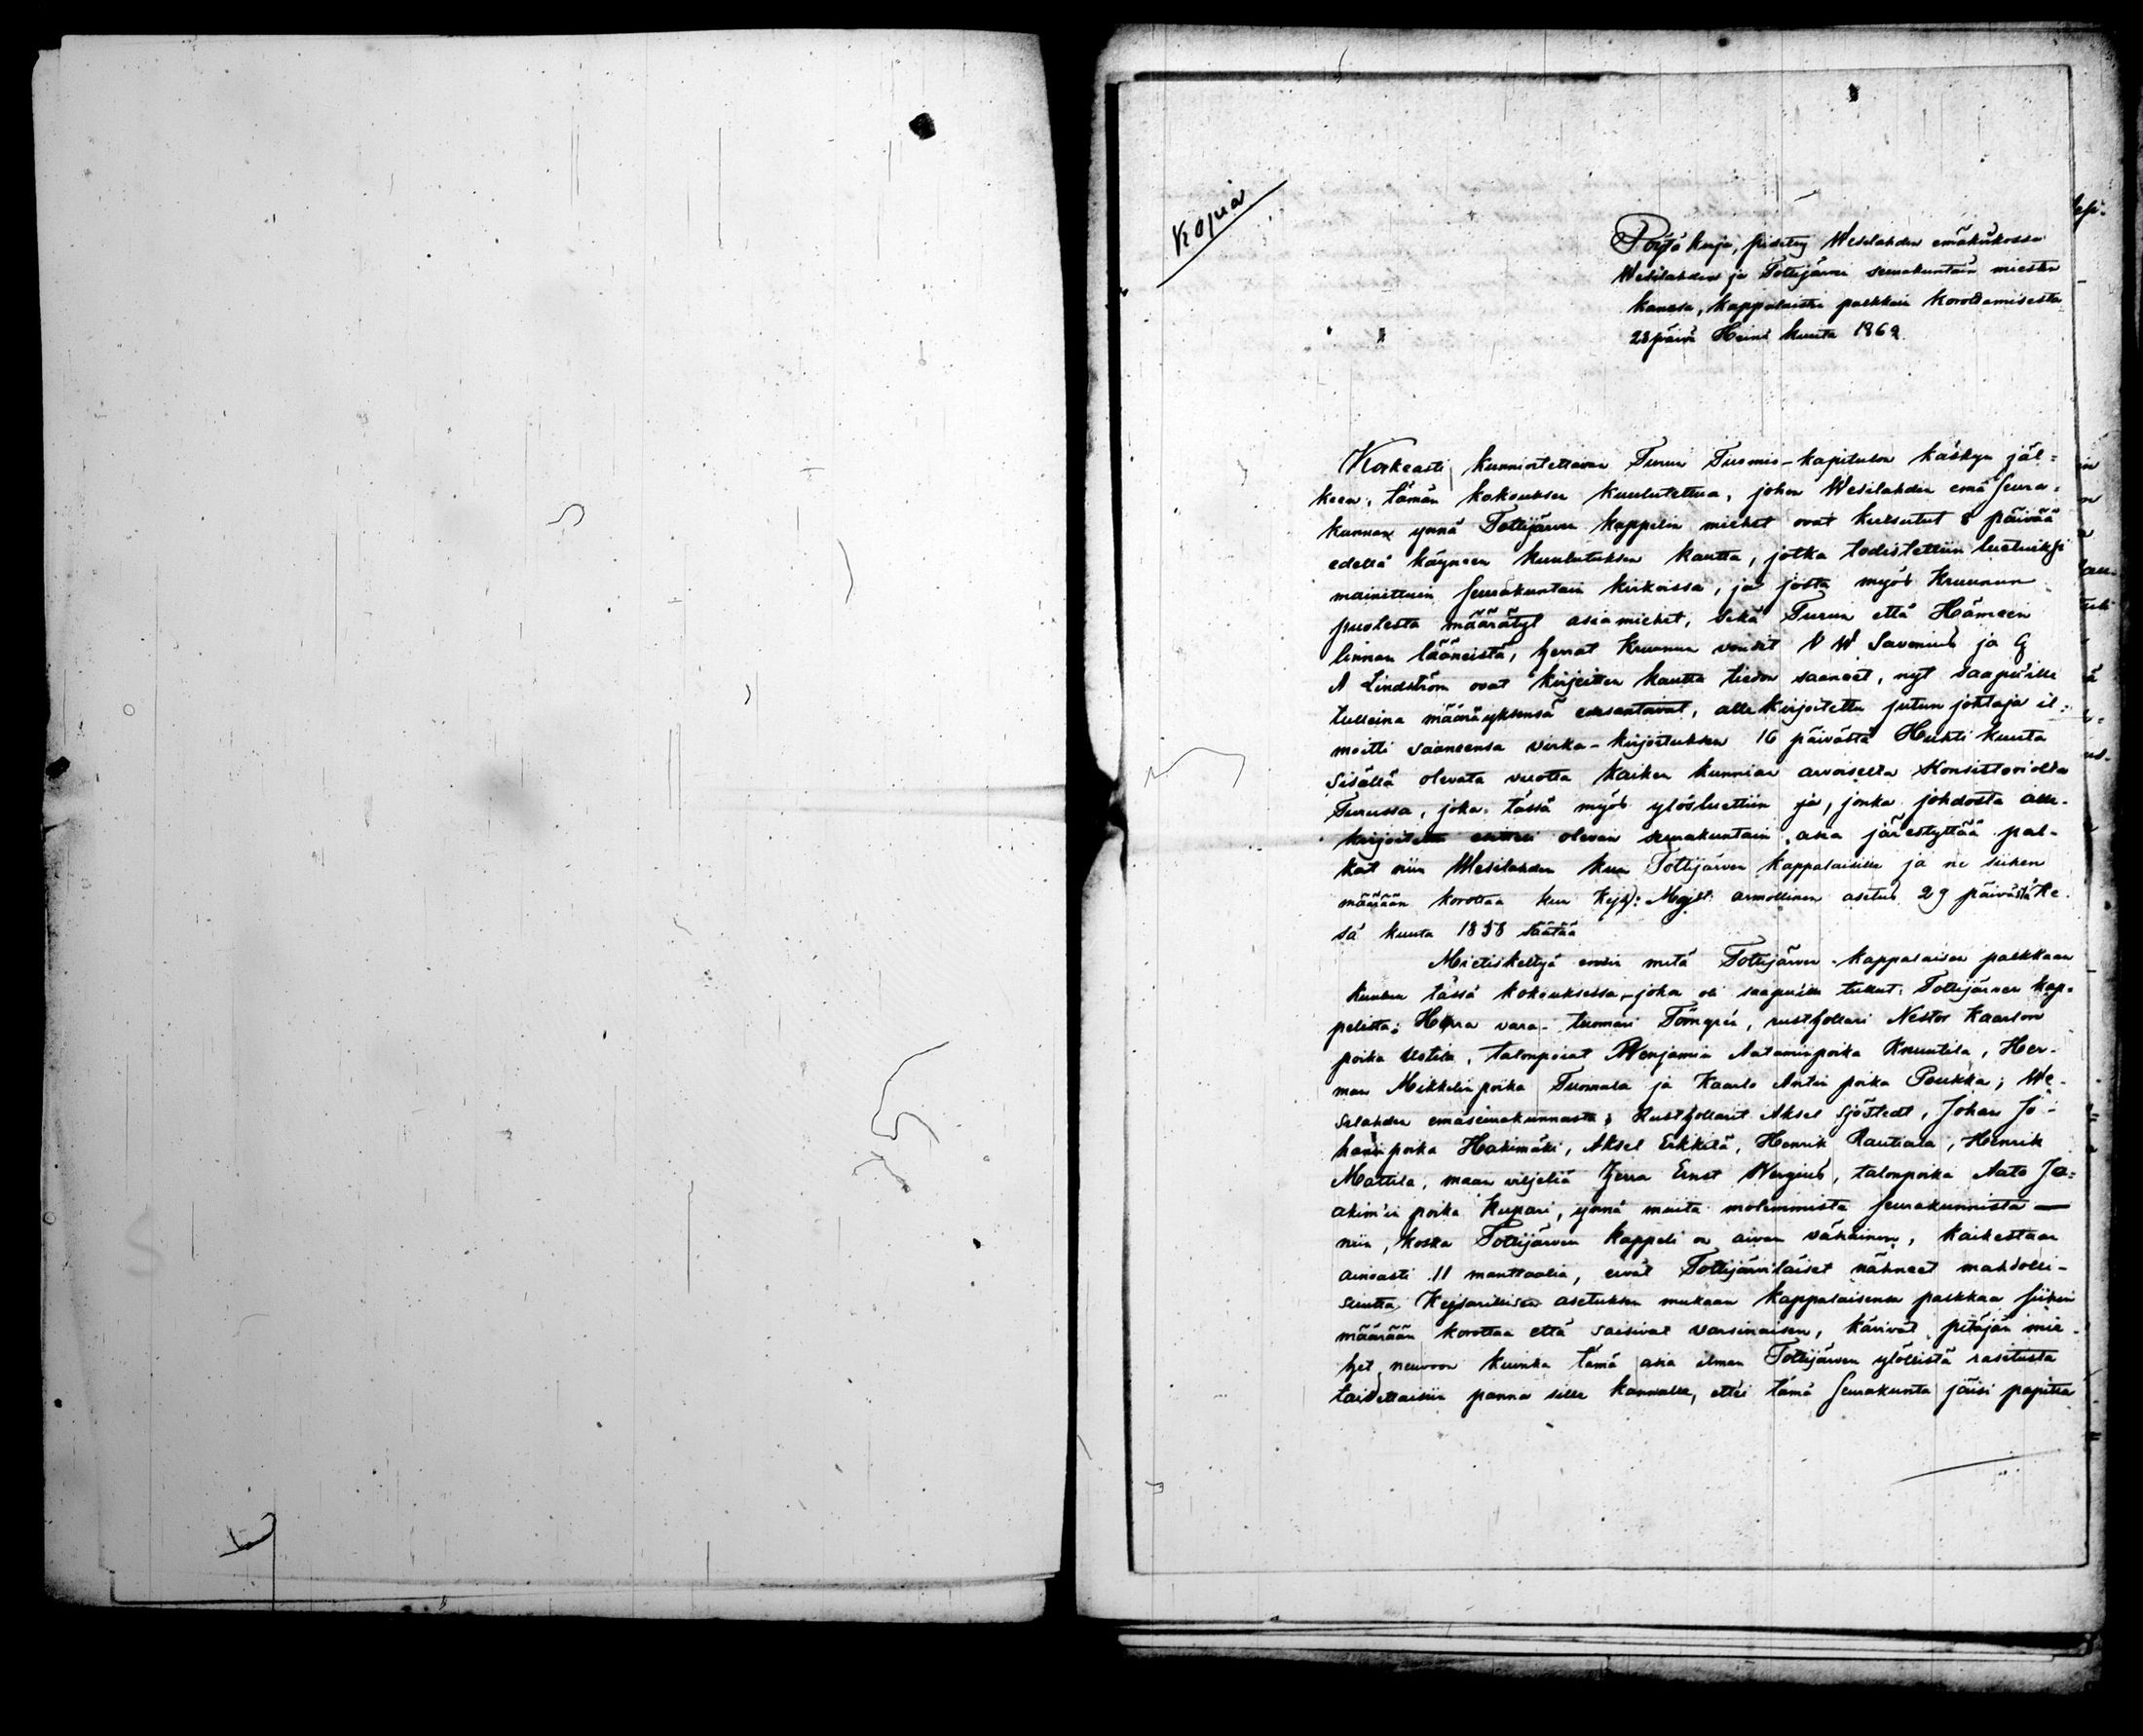 Kopia
Pöytä kirja, pidetty Wesilahden emäkirkossa
Wesilahden ja Tottijärven seurakuntain miesten
kanssa, kappalaisten palkkain korottamisesta
28 päivä Heinä kuuta 1869.
Korkeasti kunnioitettavan Turun Tuomio-kapitulon käskyn jäl-
keen, tämän kokouksen kuulutettua, johon Wesilahden emä seura-
kunnan ynnä Tottijärven kappelin miehet ovat kutsutut 8 päivää
edellä käyneen kuulutuksen kautta, jotka todistettiin luetuiksi
mainittuin seurakuntain kirkoissa, ja josta myös Kruunun
puolesta määrätyt asiamiehet, sekä Turun että Hämeen
linnan lääneistä, herrat Kruunun voudit N W Savonius ja G
A Lindström ovat kirjeitten kautta tiedon saaneet, nyt saapuille
tulleina määräyksensä edesantavat, alle kirjoitettu jutun johtaja il-
moitti saaneensa virka-kirjoituksen 16 päivästä Huhti kuuta
sisällä olevata vuotta kaiken kunnian arvoiselta Konsistoriolta
Turussa, joka tässä myös ylösluettiin ja, jonka johdosta alle-
kirjoitettu olevan seurakuntain asia järjestyttää pal-
kat niin Wesilahden kuin Tottijärven kappalaisille ja ne siihen
määrään korottaa kun Kejs: Majst: armollinen asetus 29 päivästä Ke-
sä kuuta 1858 säätää
Mietiskeltyä ensin mitä Tottijärven kappalaisen palkkaan
kuuluu tässä kokouksessa, johon oli saapuille tullut: Tottijärven kap-
pelista: Herra vara-tuomari Törngren, rusthollari Nestor Kaarlon
poika Uotila, talonpojat Wenjamin Aataminpoika Knuutila, Her-
man Mikkelin poika Tuomala ja Kaarlo Antin poika Poukka; We-
silahden emäseurakunnasta; Rusthollarit Aksel Sjöstedt, Johan Jo-
hanin poika Hakimäki, Aksel Erkkilä, Henrik Rautiala, Henrik
Mattila, maan viljeliä herra Ernst Wergius, talonpoika Aato Jo-
akim'in poika Kupari, ynnä muita molemmista seurakunnista —
niin, koska Tottijärven kappeli on aivan vähäinen, kaikestaan
ainoasti 11 manttaalia, eivät Tottijärviläiset nähneet mahdolli-
suutta Keisarillisen asetuksen mukaan kappalaisensa palkkaa siihen
määrään korottaa että saisivat varsinaisen, kävivät pitäjän mie-
het neuvoon kuinka tämä asia ilman Tottijärven ylöllistä rasitusta
taidettaisiin panna sille kannalle, ettei tämä seurakunta jäisi papitta